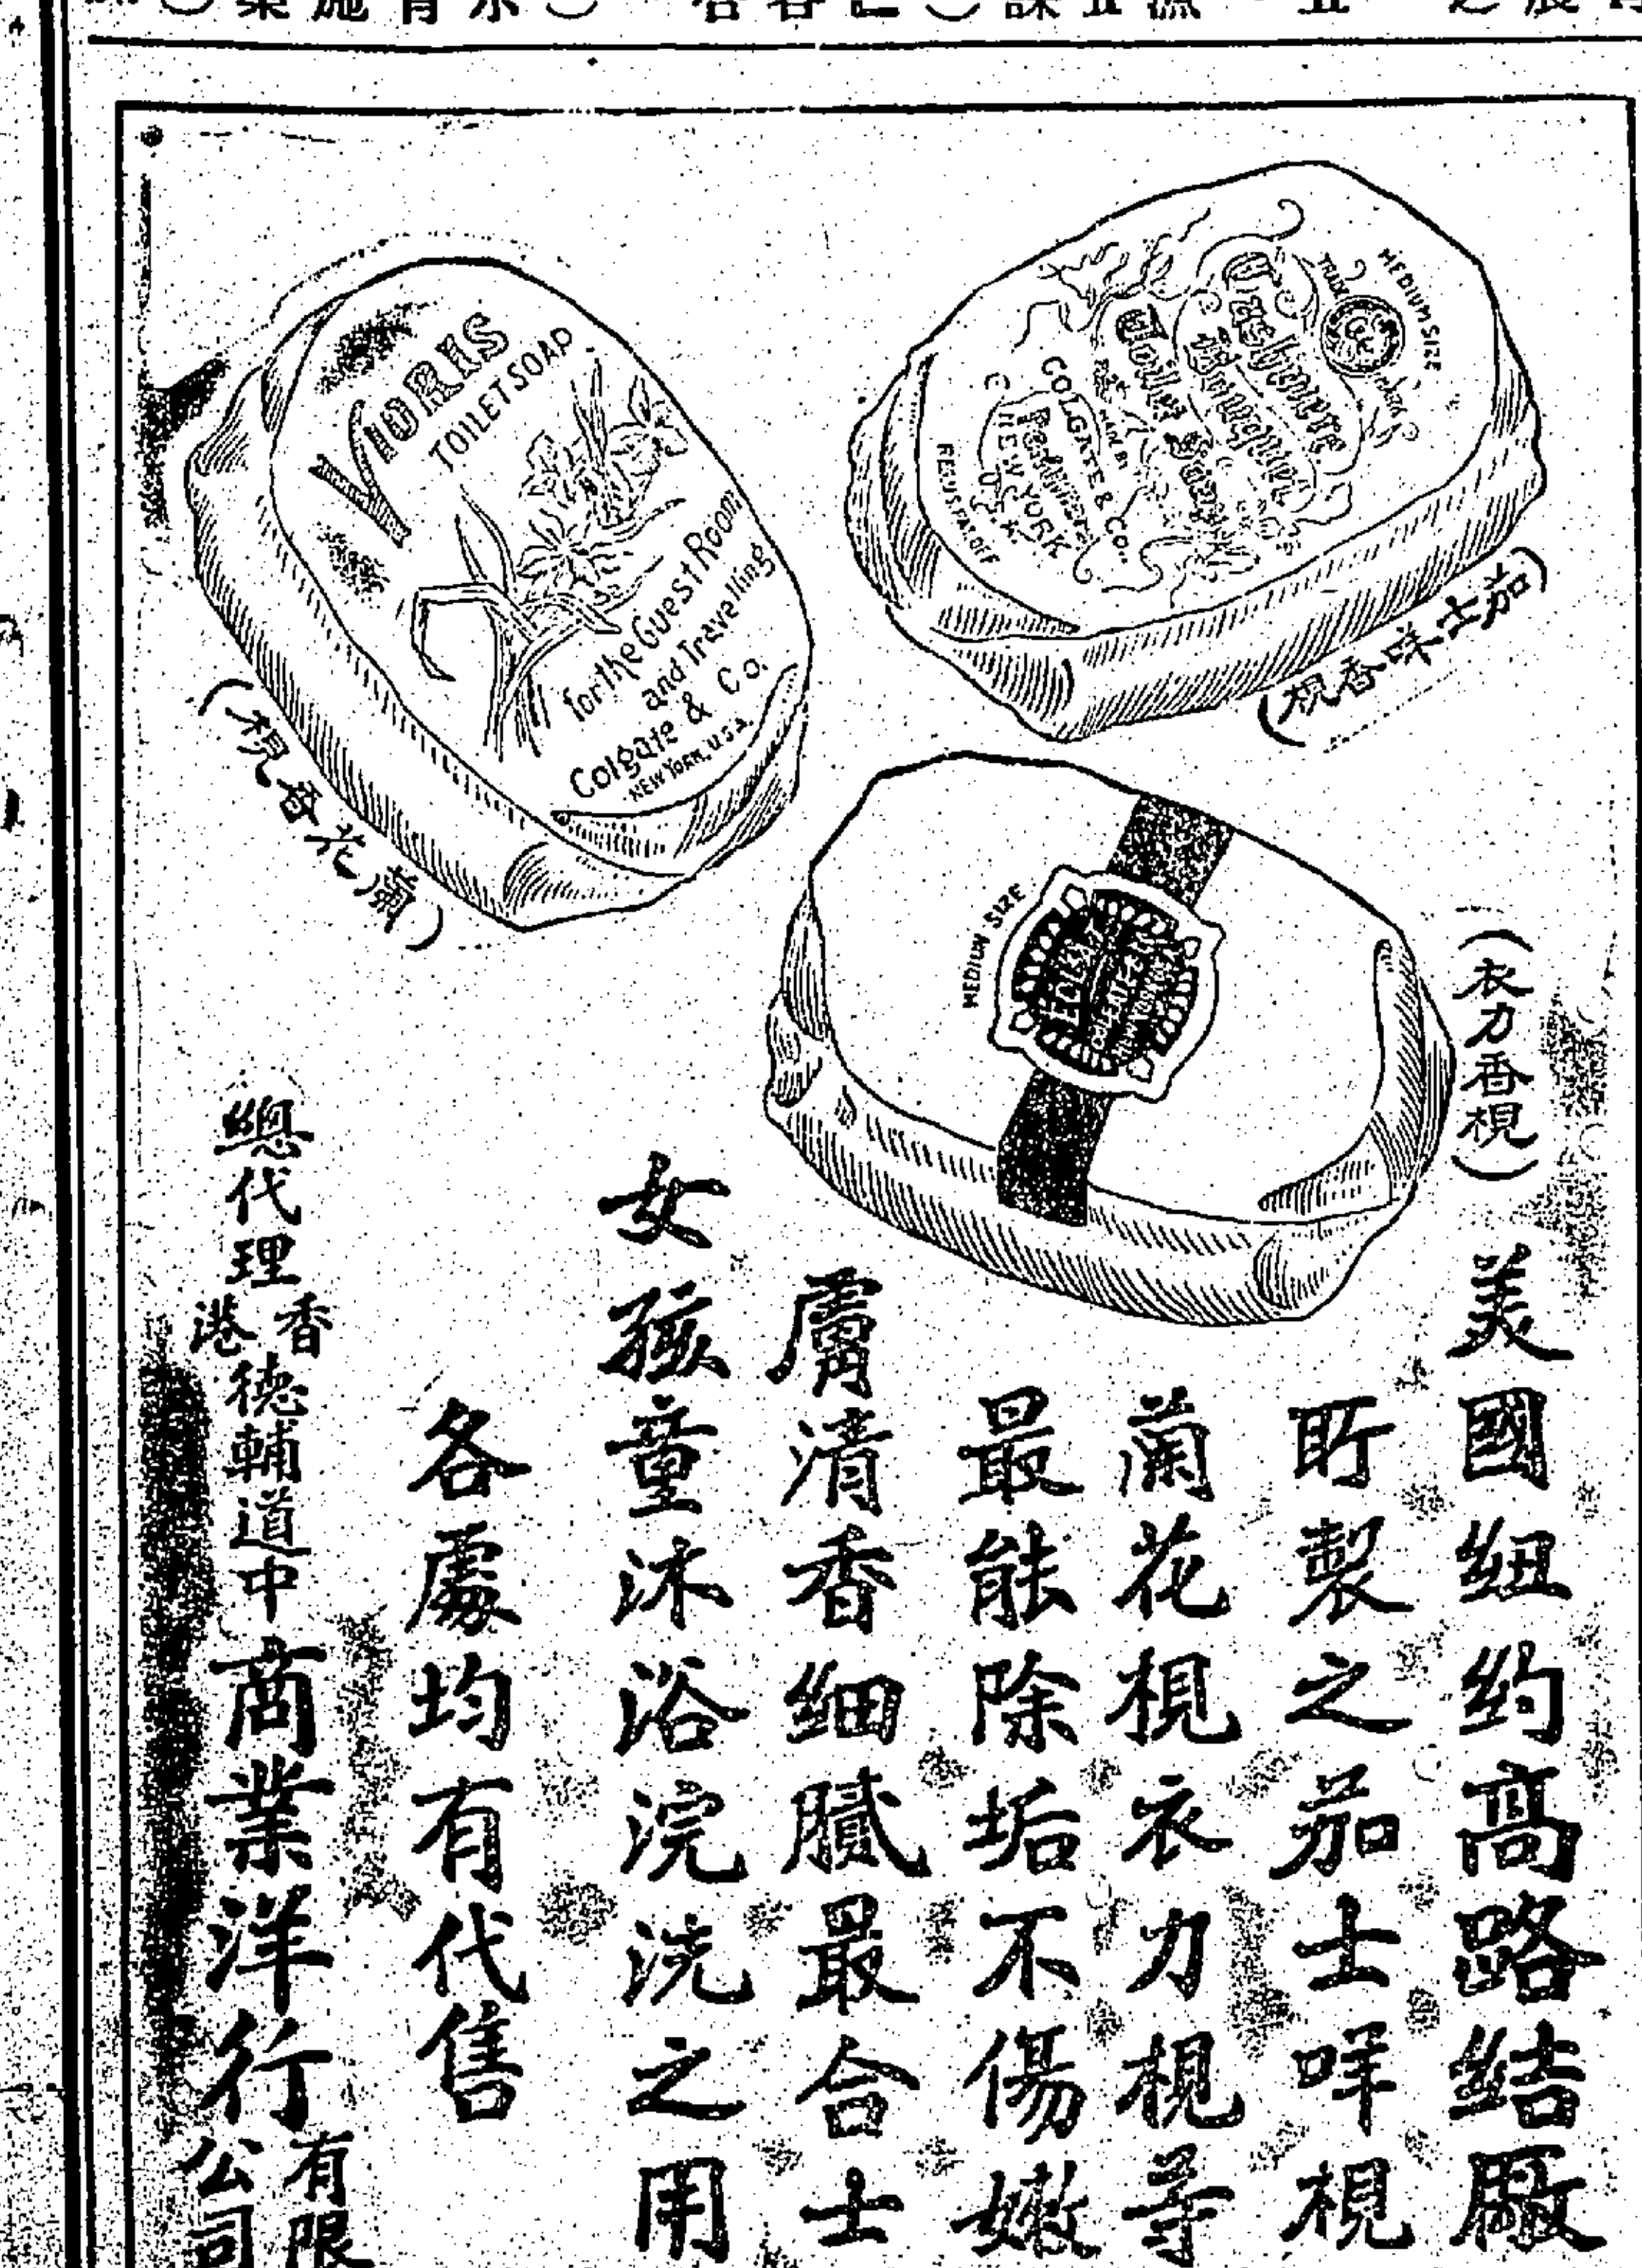 VIORIS
TOILET SOAP
for the Guest Room
and Travelling
Colgate & Co.
NEW YORK, U.S.A.
(蘭花香枧)
MEDIUM SIZE
TRADE
Cashmere
Bouquet
Toilet Soap
COLGATE & CO.
Perfumers
NEW YORK
U.S.A.
REG. U.S. PAT. OFF.
(茄士咩香枧)
MEDIUM SIZE
(衣力香枧)
美國紐約高路結廠
所製之茄士咩枧
蘭花枧衣力枧等
最能除垢不傷嫩
膚清香細膩最合士
女孩童沐浴浣洗之用
各處均有代售
總代理香港德輔道中商業洋行有限公司